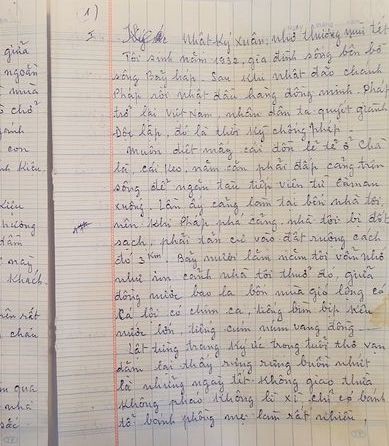 1)
I
Nhật Ký Xuân, nhớ thương mùi tết
Tôi sinh năm 1932, gia đình sống bên bờ
sông Bảy háp. Sau khi nhật đảo chánh
Pháp rồi nhật đầu hàng đồng minh. Pháp
trở lại Việt Nam, nhân dân ta quyết giành
Độc lập, đó là thời kỳ chống pháp.
Muốn diệt mấy cái đồn lẻ tẻ ở Chà
là, cái keo, năm căn phải đắp cảng trên
sông để ngăn tàu tiếp viện từ càmau
xuống. Lần ấy cảng làm tại bên nhà tôi,
nên khi Pháp phá cảng, nhà tôi bị đốt
sạch, phải tản cư vào đất ruộng cách
đó 3 Km. Bảy mươi lăm năm tôi vẫn nhớ
như in cảnh nhà tôi thuở đó, giữa
đồng nước bao la bốn mùa gió lộng có
cá lội có chim ca, tiếng bìm bịp kêu
nước lớn tiếng cúm núm vang đồng.
Lật từng trang ký ức trong tuổi thơ van
dặm lại thấy rưng rưng buồn nhứt
là những ngày tết. Không giao thừa
không pháo, không lì xì chỉ có bánh
tét bánh phồng mẹ làm rất nhiều
giữa
ngoằn
mùa
chở
con
kiều
phương
dám
nay
khách.
rất
cháu
qua
nhà
sắc